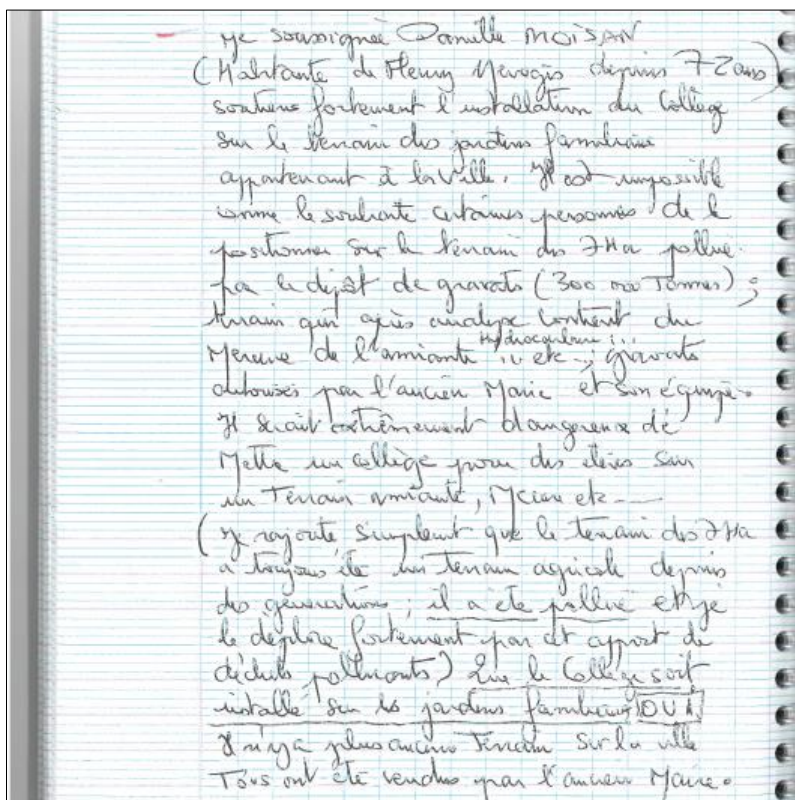 Je soussignée Danielle MOISAN
(Habitante de Fleury Mérogis depuis 72 ans)
soutiens fortement l'installation du Collège
sur le terrain des jardins familiaux
appartenant à la Ville. Il est impossible
comme le souhaite certaines personnes de le
positionner sur le terrain des 7Ha pollué
par le dépôt de gravats (300 000 Tonnes) ;
terrain qui après analyse contient du
Hydrocarbure !!!
Mercure de l'amiante !! etc ; gravats
autorisés par l'ancien Maire et son équipe.
Il serait extrêmement dangereux de
Mettre un collège pour des élèves sur
un Terrain amianté, etc ----
(Je rajoute simplement que le terrain des 7Ha
a toujours été un terrain agricole depuis
des générations ; il a été pollué et je
le déplore fortement par cet apport de
déchets polluants) Que le Collège soit
installé sur les jardins familiaux OUI
Il n'y a plus aucun Terrain sur la ville
Tous ont été vendus par l'ancien Maire.